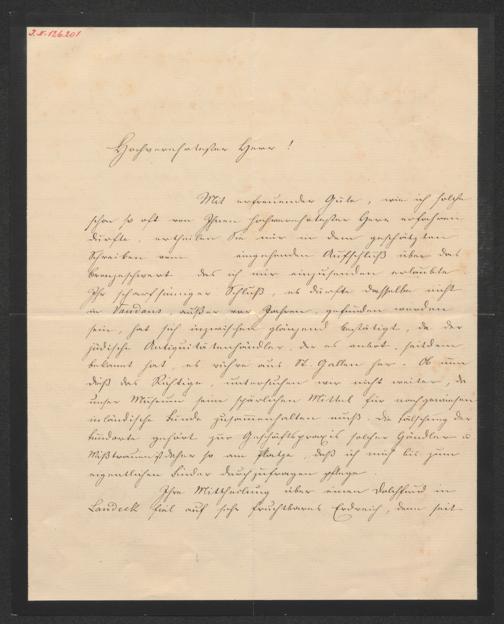 J.N. 126.201
Hochverehrtester Herr!
Mit erfreuender Güte, wie ich solche
schon so oft von Ihnen hochverehrtester Herr erfahren
durfte, ertheilen Sie mir in dem geschätzten
Schreiben vom eingehenden Aufschluß über das
Bronzeschwert das ich mir einzusenden erlaubte
Ihr scharfsinniger Schluß, es dürfte dasselbe nicht
in Vandans außer vor Jahren, gefunden worden
sein, hat sich inzwischen glänzend bestätigt, da der
jüdische Antiquitätenhändler, der es anbot, seitdem
bekannt hat, es rühre aus St. Gallen her. Ob nun
dieß das Richtige, untersuchen wir nicht weiter, da
unser Museum seine spärlichen Mittel für
inländische Funde zusammenhalten muß. Die Fälschung der
Fundorte gehört zur Geschäftspraxis solcher Händler u
Mißtrauen ist daher so am Platze, daß ich mich bis zum
eigentlichen Finder durchzufragen pflege.
Ihre Mittheilung über einen Dolchfund in
Landeck fiel auf sehr fruchtbares Erdreich, denn seit